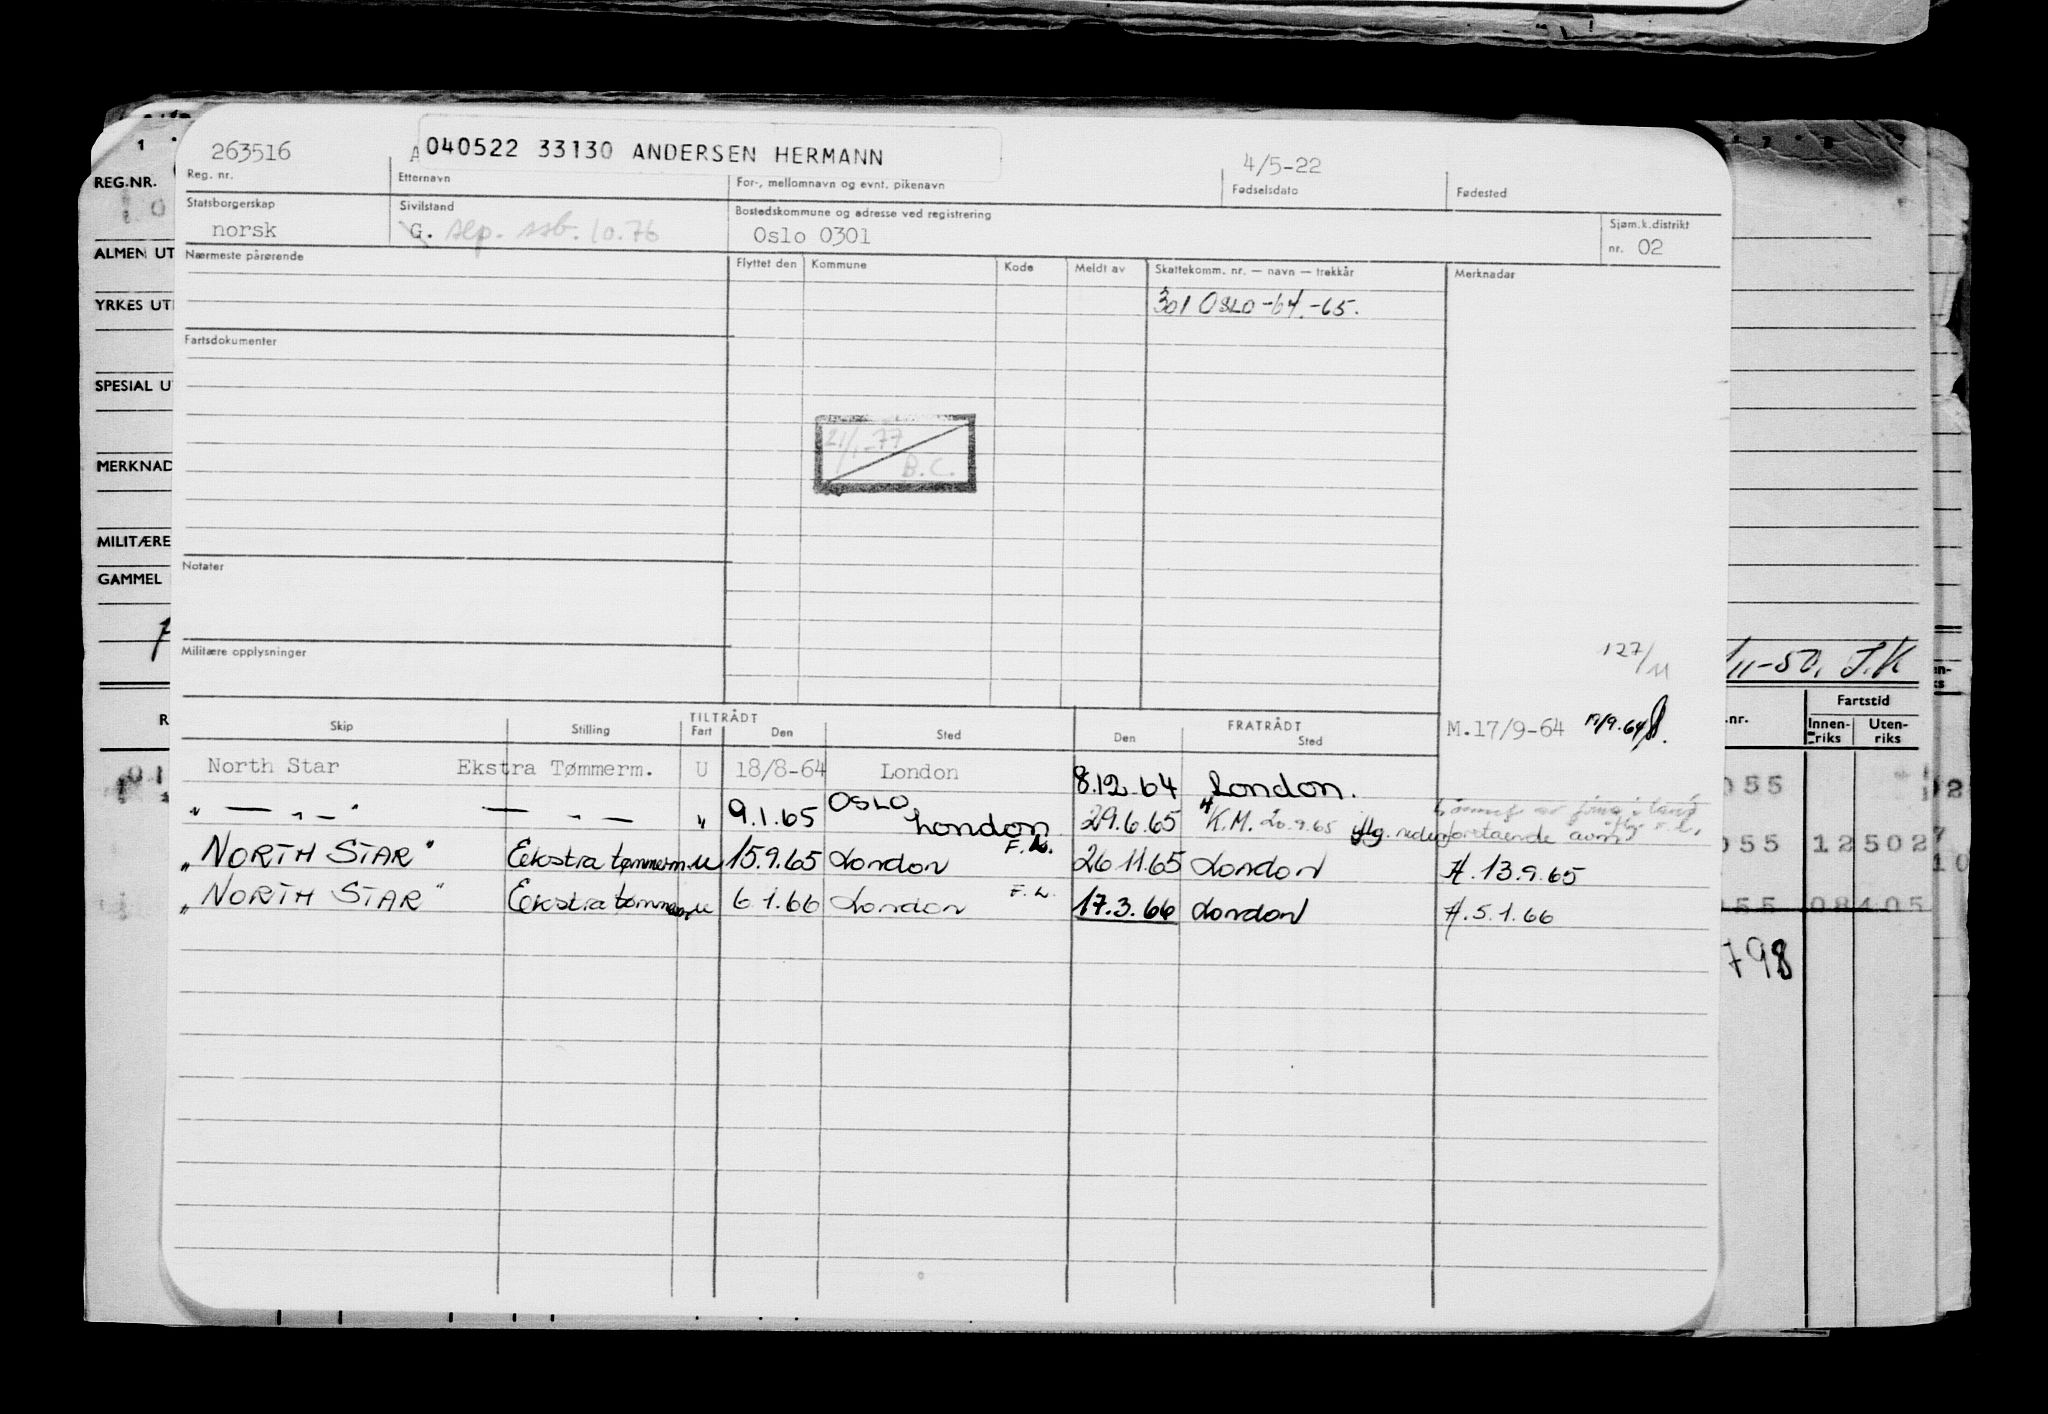 263516
040522 33130 ANDERSEN HERMANN
4/5-22
Reg. nr.
Etternavn
For-, mellomnavn og evnt. pikenavn
Fødselsdato
Fødested
Statsborgerskap
norsk
Sivilstand
G. sep. ssb. 10.76
Bostedskommune og adresse ved registrering
Oslo 0301
Sjøm.k.distrikt
nr. 02
Nærmeste pårørende
Flyttet den
Kommune
Kode
Meldt av
Skattekomm. nr. — navn — trekkår
Merknader
301 OSLO -64. -65.
Fartsdokumenter
21/1-77
B.C.
Notater
Militære opplysninger
127/11
TILTRÅDT
FRATRÅDT
Skip
Stilling
Fart
Den
Sted
Den
Sted
M.17/9-64 17/9.64
North Star Ekstra Tømmerm. U 18/8-64 London 8.12.64 London.
" — " — " — " — " 9.1.65 OSLO London 29.6.65 K.M. 20.9.65 iflg. nedenforstående avm.
F.L.
"NORTH STAR" Ekstra tømmerm. U 15.9.65 London 26.11.65 London A. 13.9.65
F.L.
"NORTH STAR" Ekstra tømmerm. U 6.1.66 London 17.3.66 London A. 5.1.66
REG.NR.
ALMEN UT
YRKES UT
SPESIAL U
MERKNAD
MILITÆRE
GAMMEL
R
/11-50, J.K
.nr.
Fartstid
Innen-
riks
Uten-
riks
055
055 12502
055 08405
798